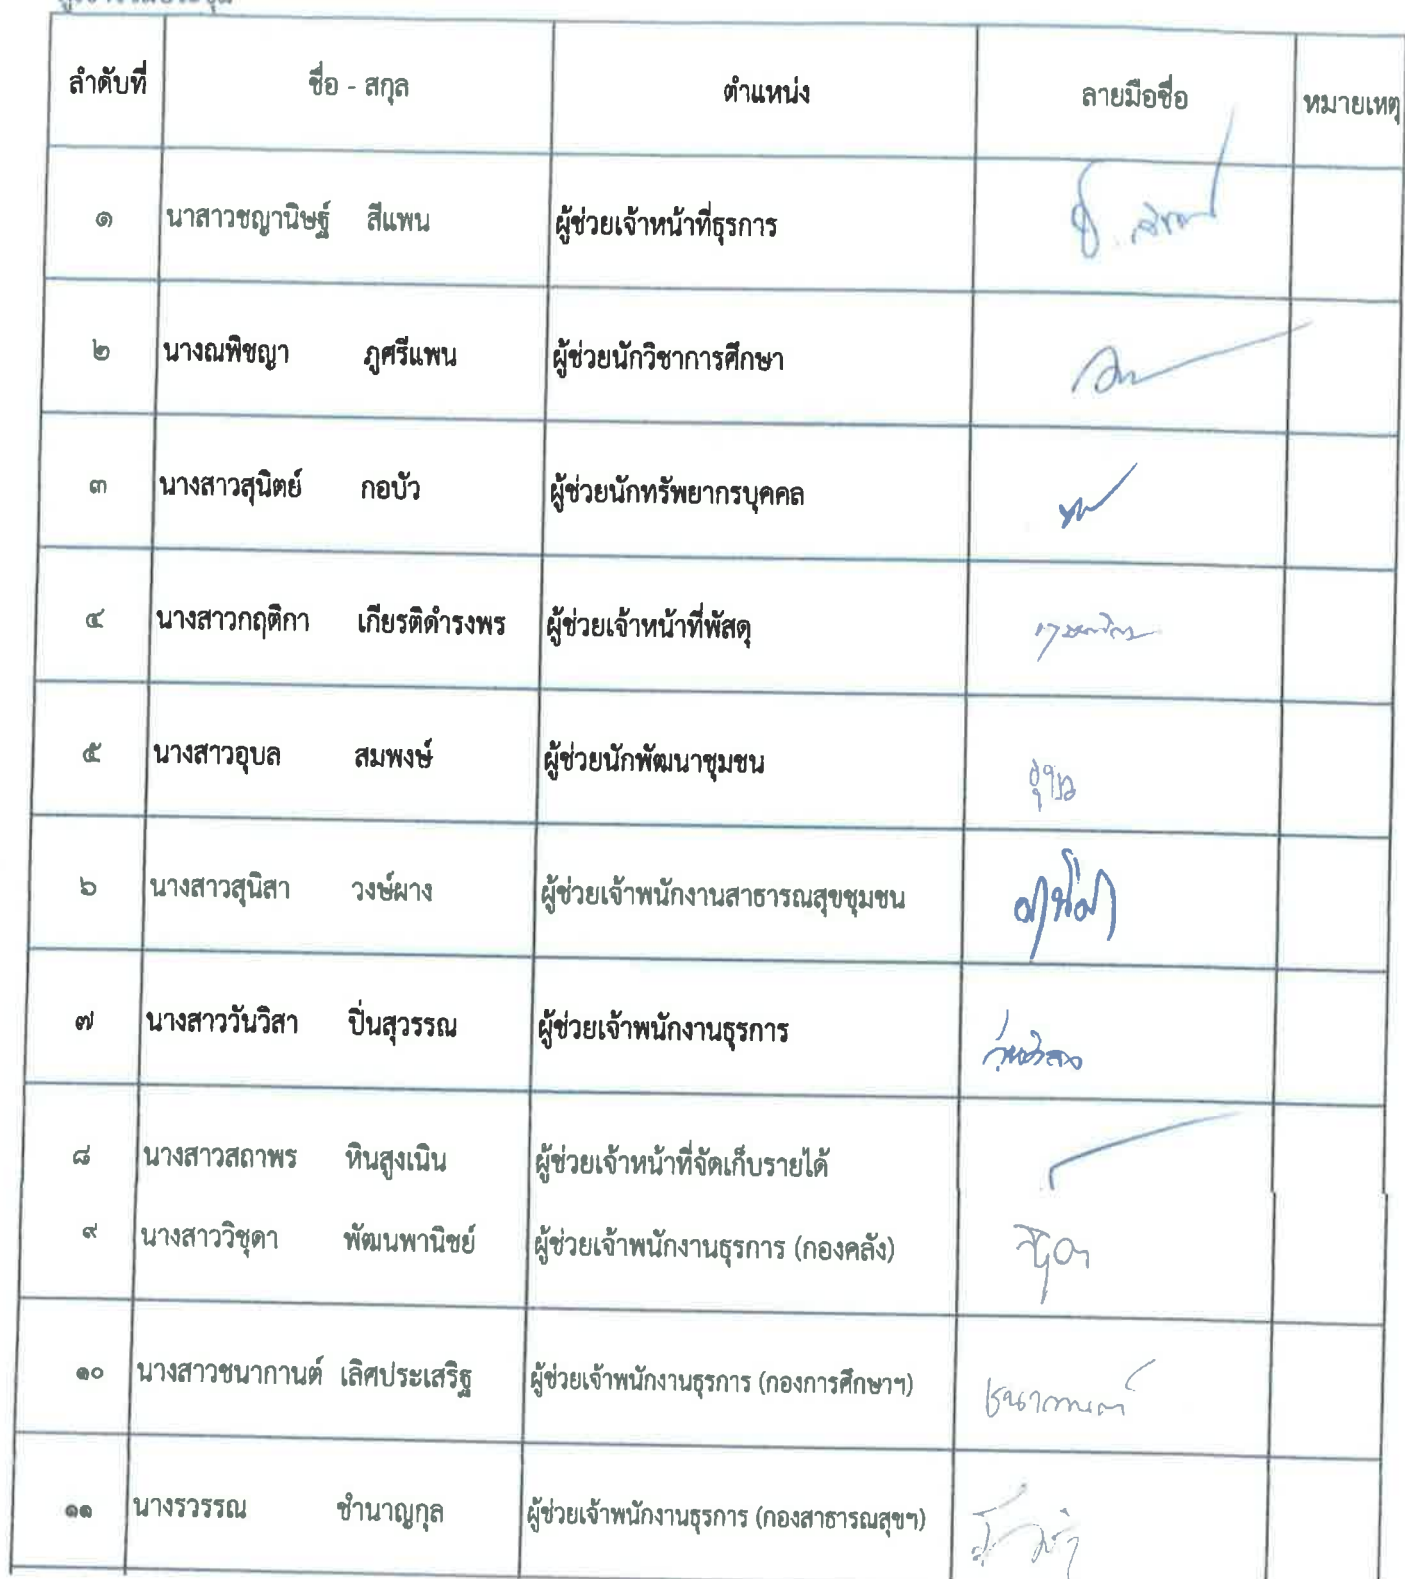 ลำดับที่ ชื่อ - สกุล ตำแหน่ง ลายมือชื่อ หมายเหตุ
๑ นาสาวชญานิษฐ์ สีแพน ผู้ช่วยเจ้าหน้าที่ธุรการ
๒ นางณพิชญา ภูศรีแพน ผู้ช่วยนักวิชาการศึกษา
๓ นางสาวสุนิตย์ กอบัว ผู้ช่วยนักทรัพยากรบุคคล
๔ นางสาวกฤติกา เกียรติดำรงพร ผู้ช่วยเจ้าหน้าที่พัสดุ
๕ นางสาวอุบล สมพงษ์ ผู้ช่วยนักพัฒนาชุมชน อุบล
๖ นางสาวสุนิสา วงษ์ผาง ผู้ช่วยเจ้าพนักงานสาธารณสุขชุมชน
๗ นางสาววันวิสา ปิ่นสุวรรณ ผู้ช่วยเจ้าพนักงานธุรการ
๘ นางสาวสถาพร หินสูงเนิน ผู้ช่วยเจ้าหน้าที่จัดเก็บรายได้
๙ นางสาววิชุดา พัฒนพานิชย์ ผู้ช่วยเจ้าพนักงานธุรการ (กองคลัง)
๑๐ นางสาวชนากานต์ เลิศประเสริฐ ผู้ช่วยเจ้าพนักงานธุรการ (กองการศึกษาฯ) ชนากานต์
๑๑ นางรวรรณ ชำนาญกุล ผู้ช่วยเจ้าพนักงานธุรการ (กองสาธารณสุขฯ)